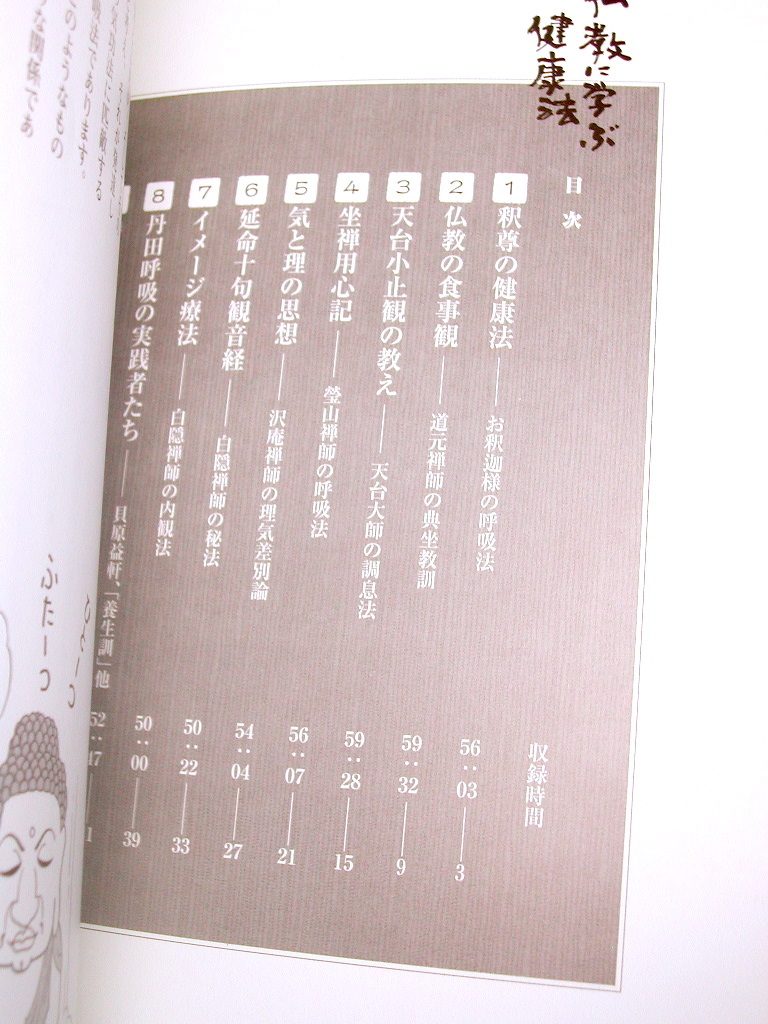 教に学ぶ
健康法
目次
収録時間
1 釈尊の健康法 ── お釈迦様の呼吸法 56:03 ── 3
2 仏教の食事観 ── 道元禅師の典坐教訓 59:32 ── 9
3 天台小止観の教え ── 天台大師の調息法 59:28 ── 15
4 坐禅用心記 ── 瑩山禅師の呼吸法 56:07 ── 21
5 気と理の思想 ── 沢庵禅師の理気差別論 54:04 ── 27
6 延命十句観音経 ── 白隠禅師の秘法 50:22 ── 33
7 イメージ療法 ── 白隠禅師の内観法 50:00 ── 39
8 丹田呼吸の実践者たち ── 貝原益軒、「養生訓」他
であります。
このようなもの
な関係であ
ひとーつ
ふたーつ